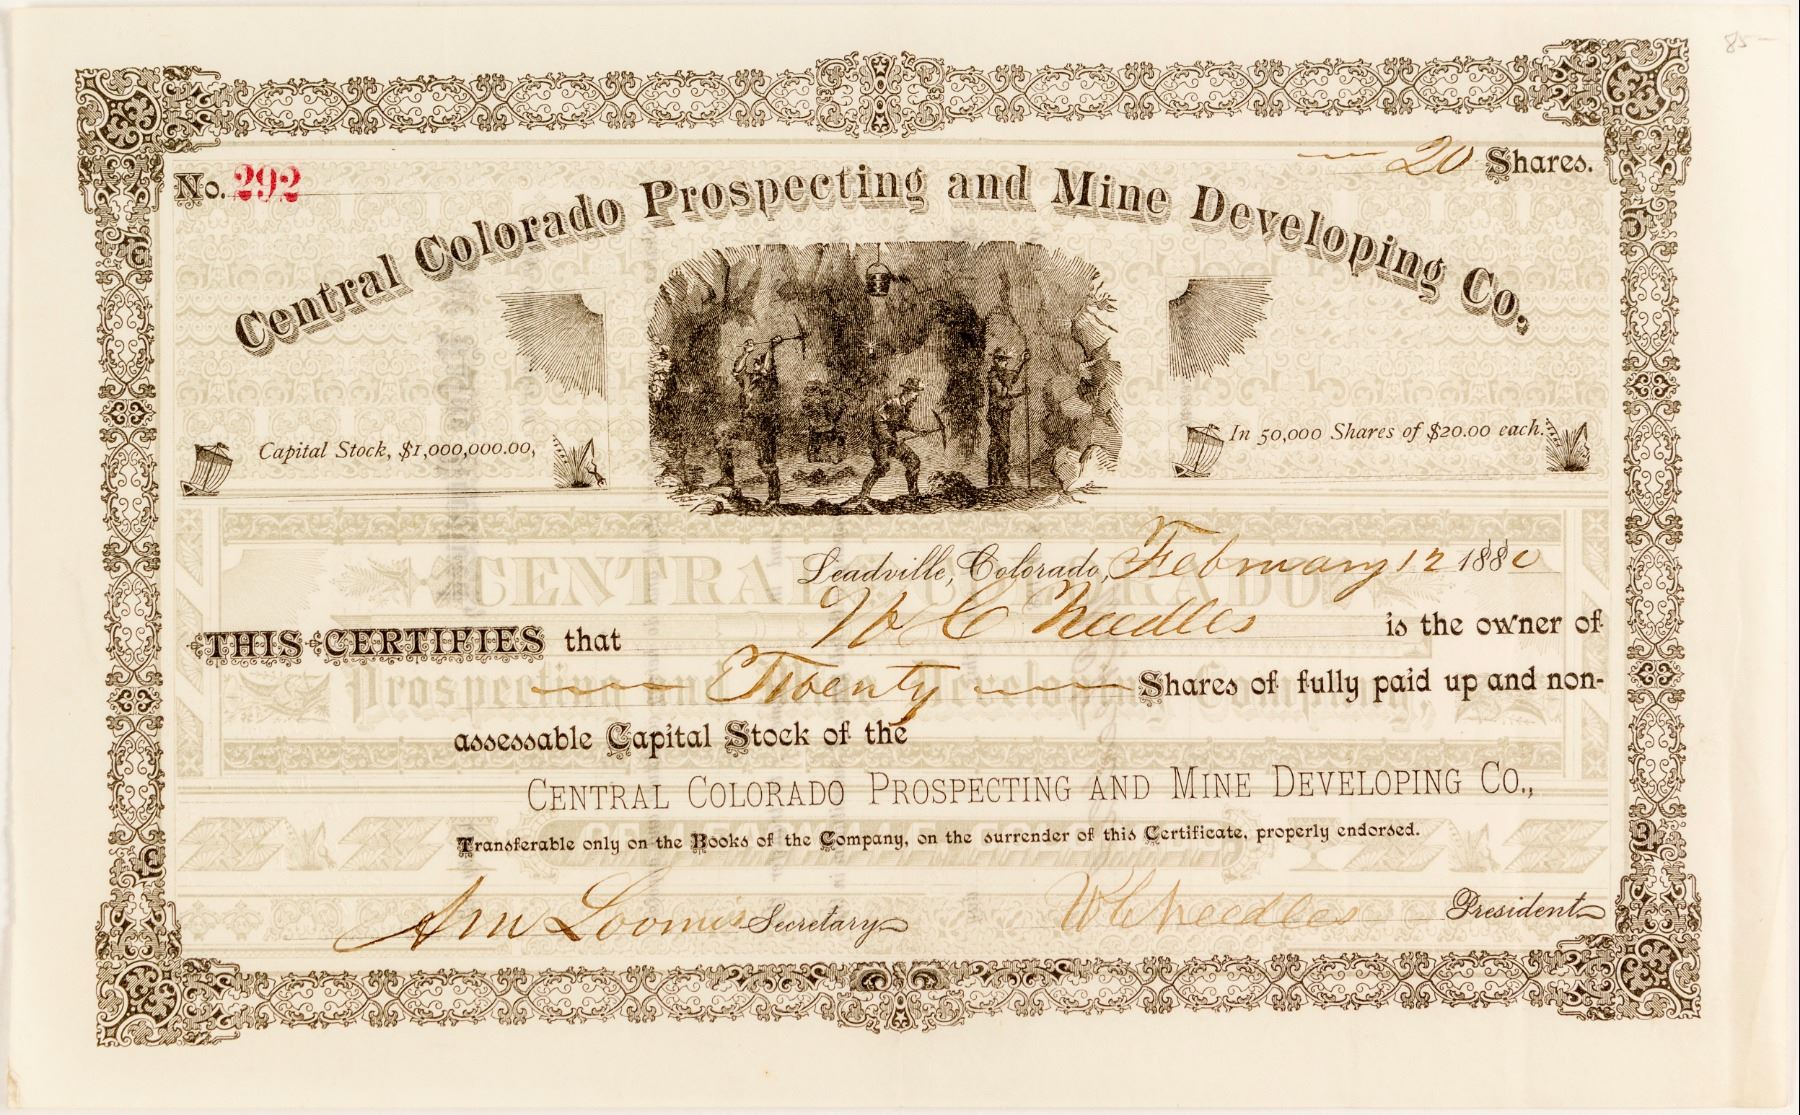 85-
No. 292
20 Shares.
Central Colorado Prospecting and Mine Developing Co.
Capital Stock, $1,000,000.00,
In 50,000 Shares of $20.00 each.
Leadville, Colorado, February 12 1880
THIS CERTIFIES that W C Needles is the owner of
Twenty Shares of fully paid up and non-
assessable Capital Stock of the
CENTRAL COLORADO PROSPECTING AND MINE DEVELOPING CO.,
Transferable only on the Books of the Company, on the surrender of this Certificate, properly endorsed.
Loomis Secretary
W C Needles President
CENTRAL COLORADO
Prospecting and Mine Developing Company,